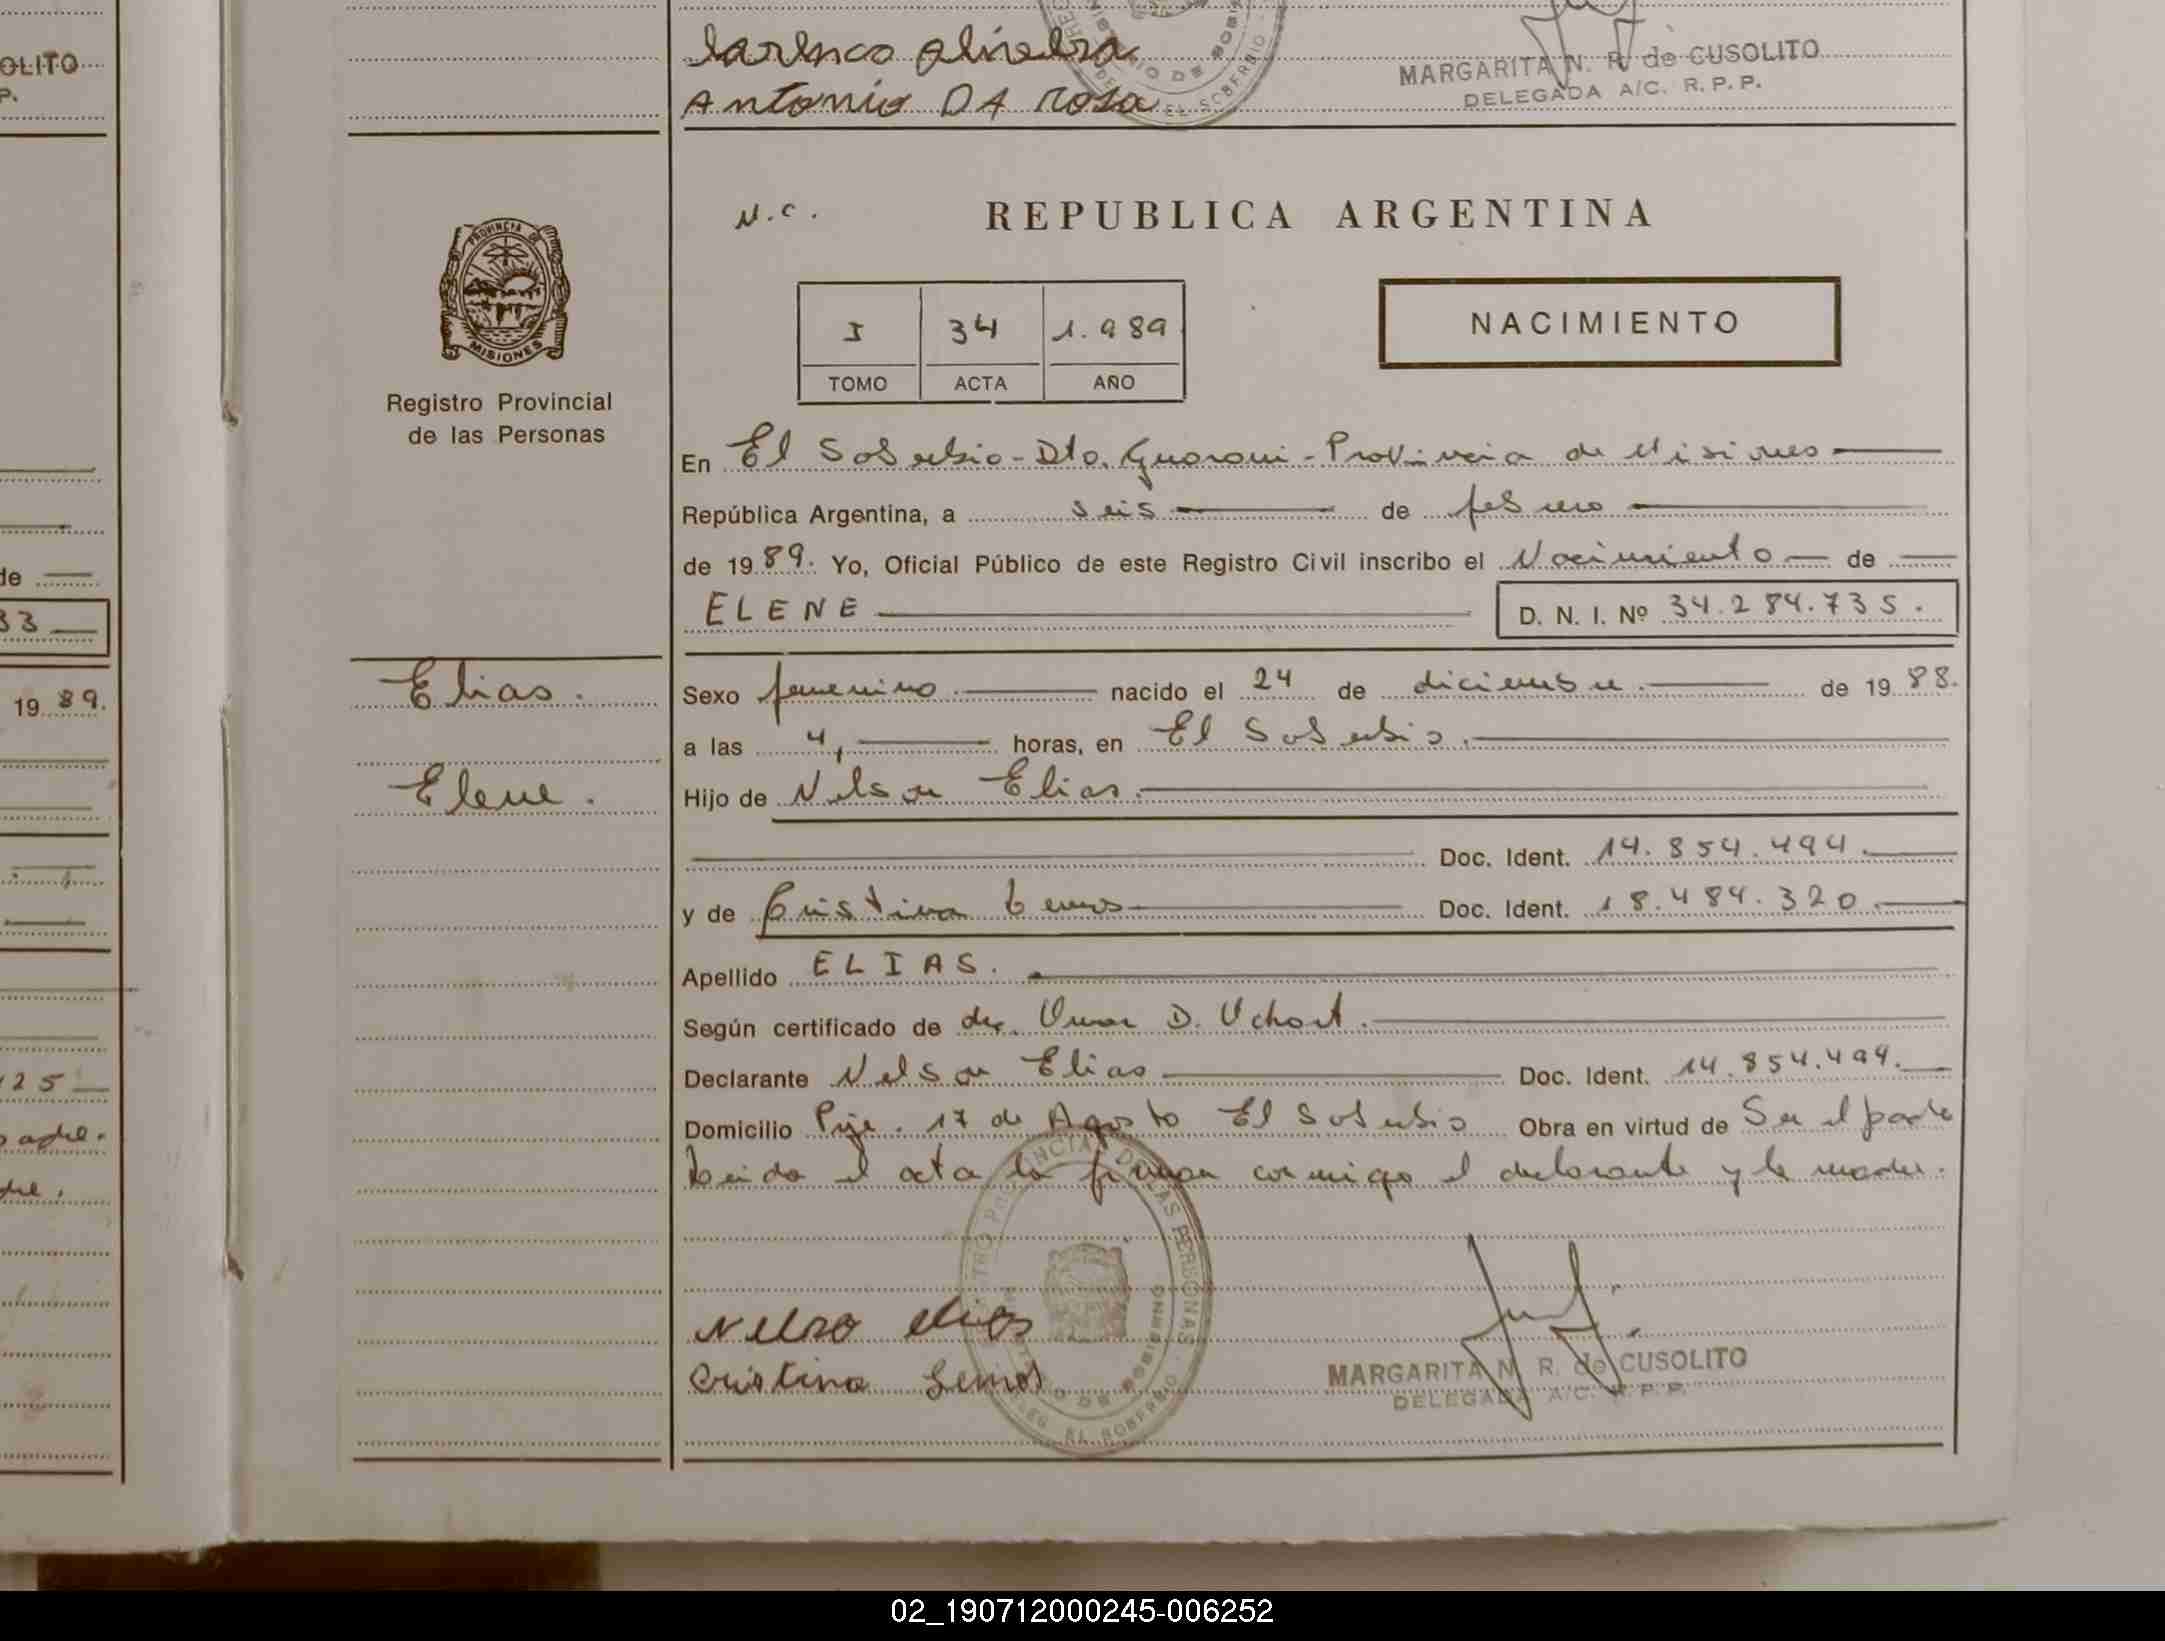 OLITO
P.
Larenco Oliveira
Antonio DA Rosa
MARGARITA N. R. de CUSOLITO
DELEGADA A/C. R.P.P.
N.C.
REPUBLICA ARGENTINA
PROVINCIA DE
MISIONES
Registro Provincial
de las Personas
I 34 1.989
TOMO ACTA AÑO
NACIMIENTO
En El Soberbio - Dto. Guarani - Provincia de Misiones
República Argentina, a seis de febrero
de 1989. Yo, Oficial Público de este Registro Civil inscribo el Nacimiento de
ELENE D. N. I. Nº 34.284.735.
de
33
19 89.
125
padre.
Elias.
Elene.
Sexo femenino. nacido el 24 de diciembre. de 19 88.
a las 4, horas, en El Soberbio.
Hijo de Nelson Elias.
Doc. Ident. 14.854.494.
y de Cristina Lemos Doc. Ident. 18.484.320.
Apellido ELIAS.
Según certificado de dr. Omar D. Uchort.
Declarante Nelson Elias Doc. Ident. 14.854.494.
Domicilio Pje. 17 de Agosto El Soberbio Obra en virtud de Ser el padre
Leida el acta la firman conmigo el declarante y la madre.
Nelso elias
Cristina Lemos
REGISTRO PROVINCIAL DE LAS PERSONAS
MINISTERIO DE GOBIERNO
DELEG. EL SOBERBIO
MARGARITA N. R. de CUSOLITO
DELEGADA A/C. R.P.P.
02_190712000245-006252